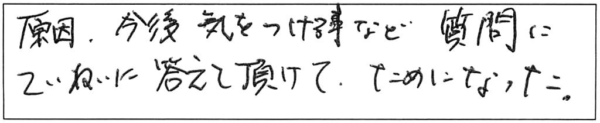 原因、今後気をつける事など 質問に
ていねいに答えて頂けて、ためになった。